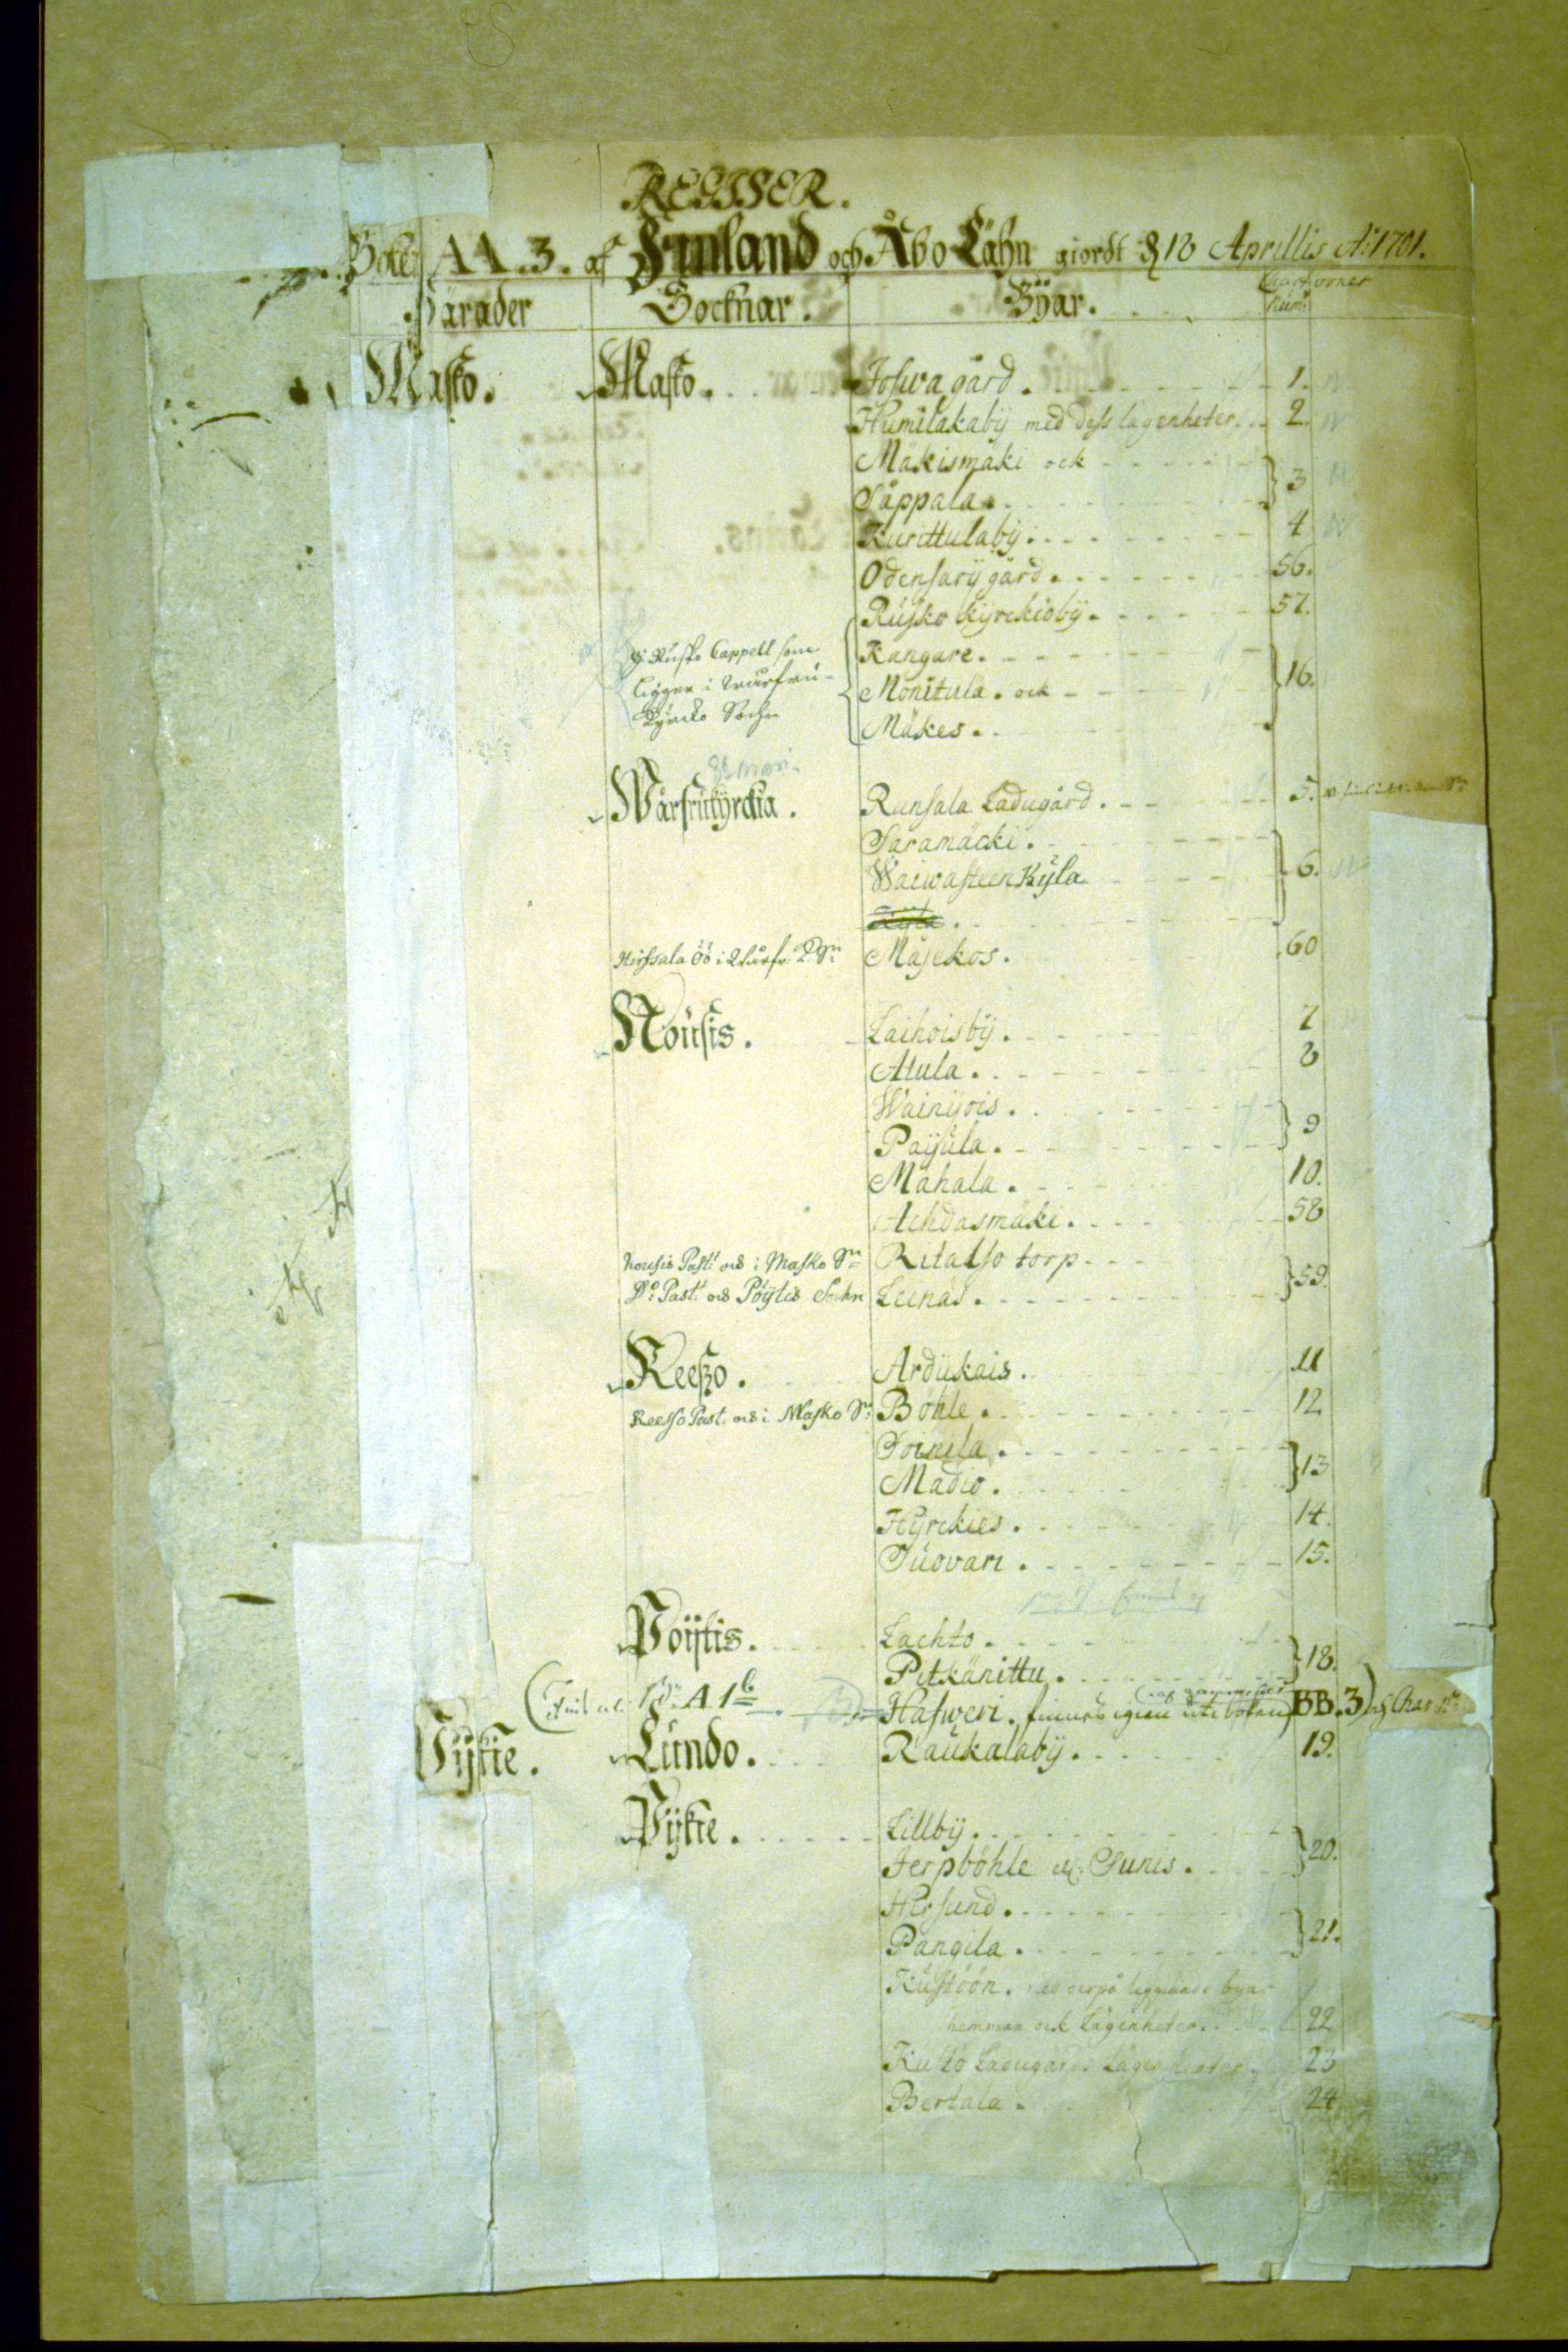 REGISTER.
Boken AA.3. af Finland och Åbo Lähn giordt d 18 Aprillis A:o 1701.
Härader Socknar. Byar. Num:
Masko. Masko. Joswa gård. 1.
Humilakabÿ med dess lägenheter. 2.
Mäkismäki ock
Såppala. } 3
Kurittulabÿ. 4
Odensarÿ gård. 56.
Rusko kÿrckiobÿ. 57.
Rusko Cappell som ligger i Wårfru-Kÿrckio Sochn
Kangare.
Monitula. ock } 16.
Mäkes.
Wårfrukÿrckia. Runsala Ladugård. 5.
Saramäcki.
Waiwasteen Kÿla } 6.
Kÿla.
Hirssala Öö i Mäjekos. 60
Nousis. Laihoisbÿ. 7
Atula. 8
Wainÿois.
Paÿula. } 9
Mahala. 10.
Achdasmäki. 58
Nousis Past: i Masko Sn Ritalso torp.
D:o Past: Pöÿtis Sochn Leinäs. } 59.
Reeszo. Ardükais. 11
Reesso Past. i Masko Sn Böhle. 12
Toinila.
Madio. } 13
Hÿrckies. 14.
Tuovari. 15.
Pöÿtis. Lachto.
Pitkänittu. } 18.
A 1 Hasweri. finnes igien uti boken BB.3)
Pÿkie. Lundo. Raukalabÿ. 19.
Pÿkie. Lillbÿ.
Jerpböhle Sunis. } 20.
Hirsund.
Pangila. } 21.
Kustöön. med derpå liggiande byar
hemman ock Lägenheter. 22
Kustö Ladugårds Lägenheter. 23
Bertala. 24